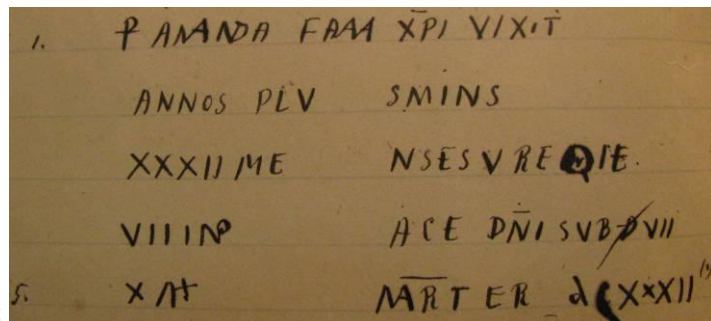 1. P AMANDA FAM X̄P̄I VIXIT
ANNOS PLV SMINS
XXXII ME NSES V REQIE.
VIII IN P ACE DN̄I SVB D VII
5. MĀRTER XXXII